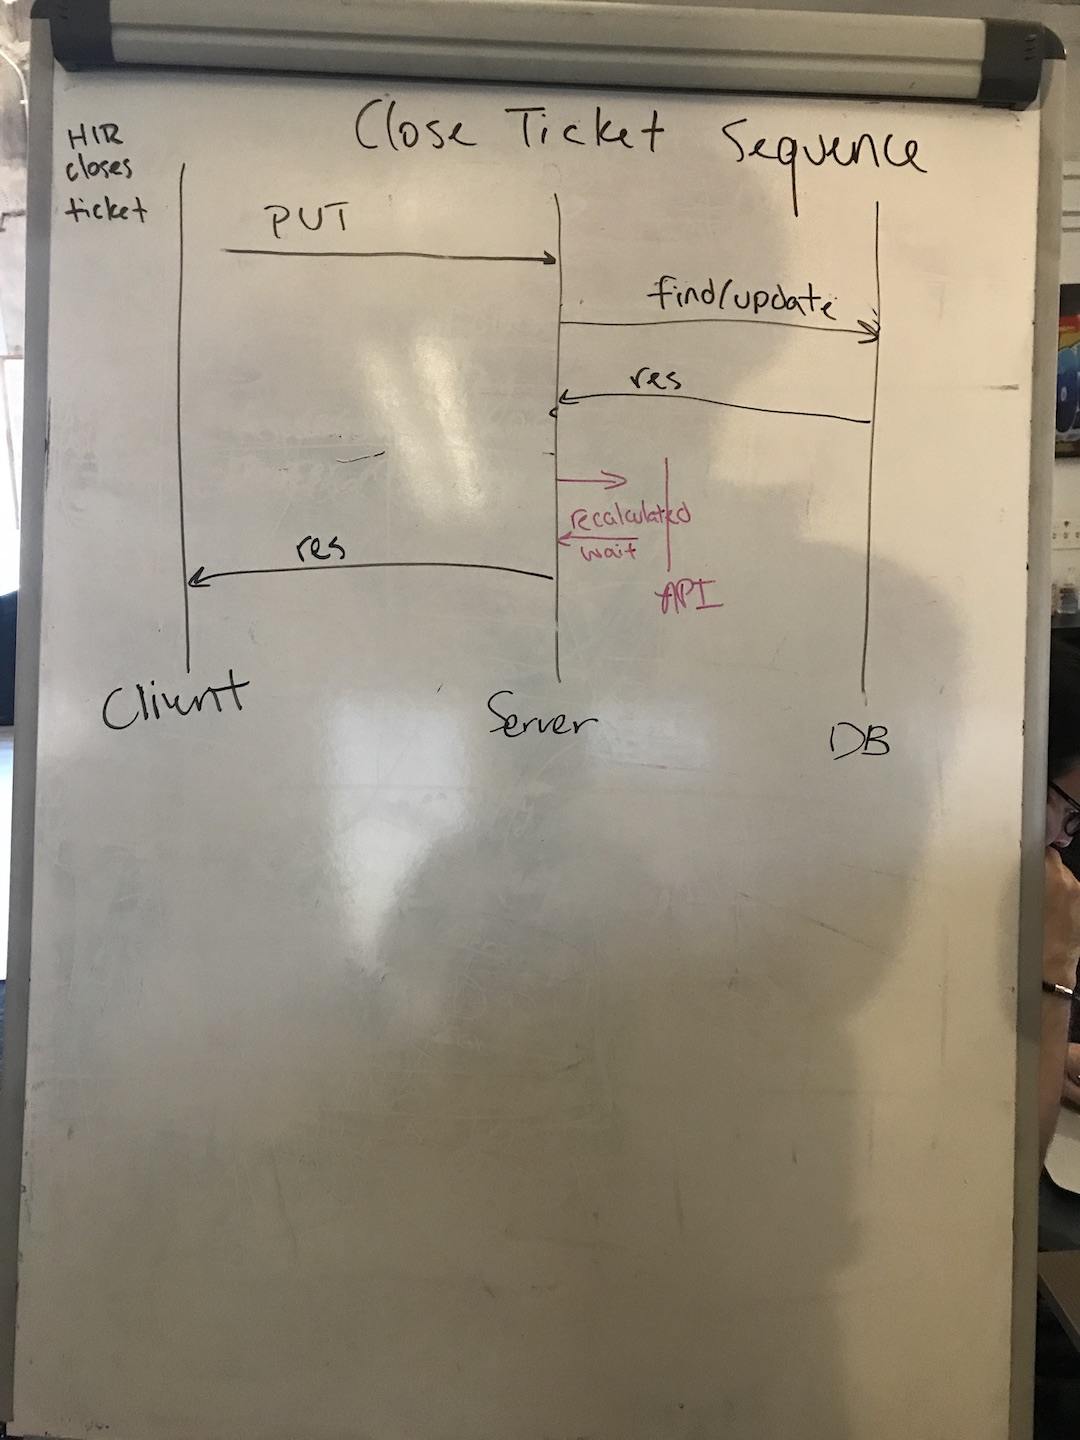 Close Ticket Sequence
HIR
closes
ticket
PUT
find/update
res
recalculated
wait
res
API
Client
Server
DB